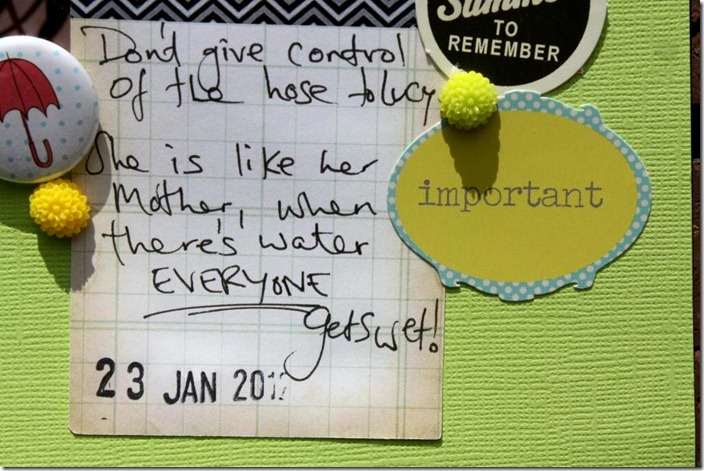 Don't give control
Of the hose to Lucy
She is like her
Mother, when
there's water
EVERYONE
gets wet!
23 JAN 2012
TO
REMEMBER
important